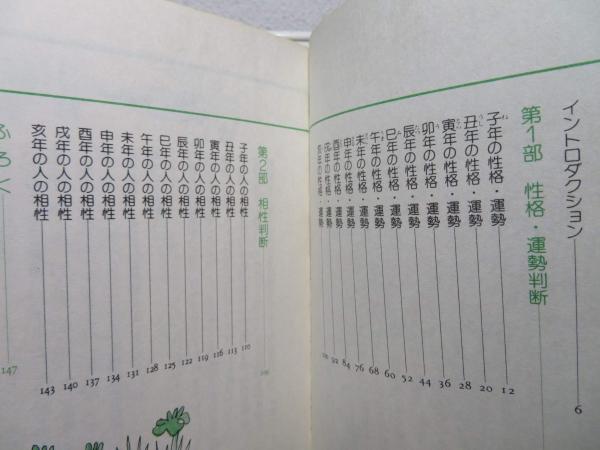 イントロダクション 6
第1部 性格・運勢判断
子年の性格・運勢 12
丑年の性格・運勢 20
寅年の性格・運勢 28
卯年の性格・運勢 36
辰年の性格・運勢 44
巳年の性格・運勢 52
午年の性格・運勢 60
未年の性格・運勢 68
申年の性格・運勢 76
酉年の性格・運勢 84
戌年の性格・運勢 92
亥年の性格・運勢
第2部 相性判断
子年の人の相性 110
丑年の人の相性 113
寅年の人の相性 116
卯年の人の相性 119
辰年の人の相性 122
巳年の人の相性 125
午年の人の相性 128
未年の人の相性 131
申年の人の相性 134
酉年の人の相性 137
戌年の人の相性 140
亥年の人の相性 143
ふろく 147